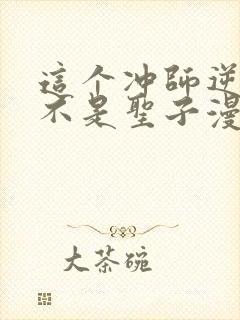 這个冲師逆
不是聖子漫
大茶碗